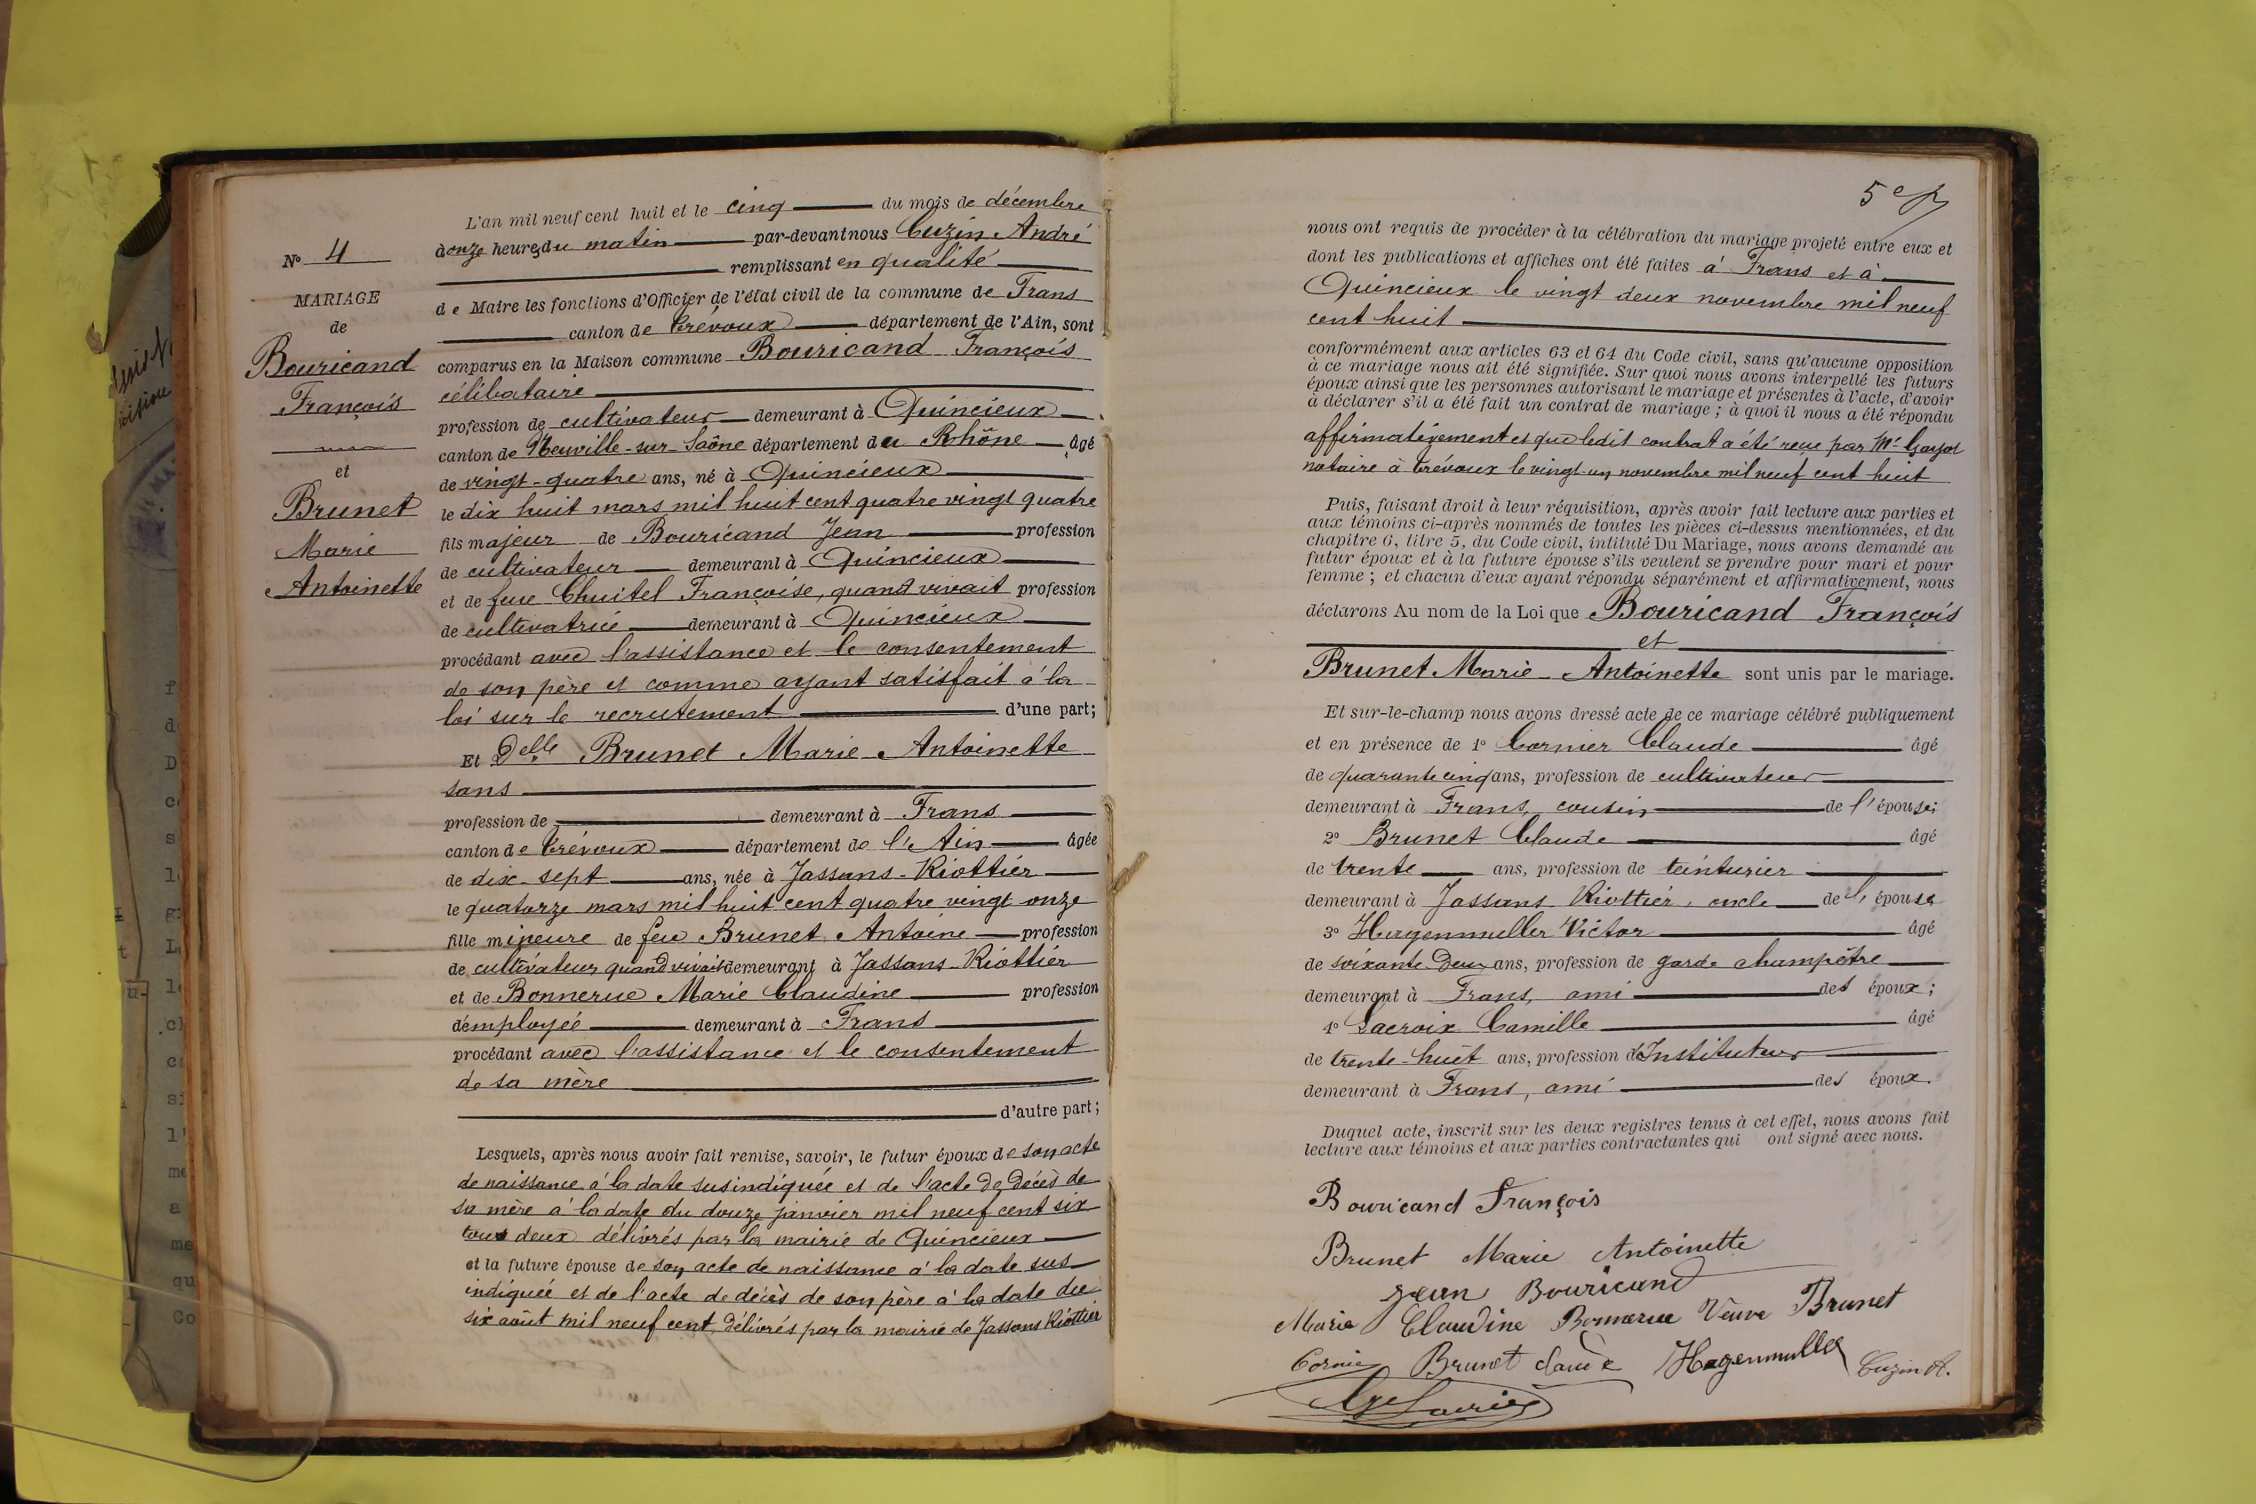 N° 4
MARIAGE
de
Bouricand
François
et
Brunet
Marie
Antoinette
L'an mil neuf cent huit et le cinq du mois de décembre
à onze heures du matin par-devant nous Cuzin André
remplissant en qualité
de Maire les fonctions d'Officier de l'état civil de la commune de Frans
canton de Trévoux département de l'Ain, sont
comparus en la Maison commune Bouricand François
célibataire
profession de cultivateur demeurant à Quincieux
canton de Neuville-sur-Saône département du Rhône âgé
de vingt-quatre ans, né à Quincieux
le dix huit mars mil huit cent quatre vingt quatre
fils majeur de Bouricand Jean profession
de cultivateur demeurant à Quincieux
et de feue Chuitel Françoise, quand vivait profession
de cultivatrice demeurant à Quincieux
procédant avec l'assistance et le consentement
de son père et comme ayant satisfait à la
loi sur le recrutement d'une part;
Et Delle Brunet Marie-Antoinette
sans
profession de demeurant à Frans
canton de Trévoux département de l'Ain âgée
de dix-sept ans, née à Jassans-Riottier
le quatorze mars mil huit cent quatre vingt onze
fille mineure de feu Brunet Antoine profession
de cultivateur quand vivait demeurant à Jassans-Riottier
et de Bonnerue Marie Claudine profession
d'employée demeurant à Frans
procédant avec l'assistance et le consentement
de sa mère
d'autre part;
Lesquels, après nous avoir fait remise, savoir, le futur époux de son acte
de naissance à la date susindiquée et de l'acte de décès de
sa mère à la date du douze janvier mil neuf cent six
tous deux délivrés par la mairie de Quincieux
et la future épouse de son acte de naissance à la date sus-
indiquée et de l'acte de décès de son père à la date du
six août mil neuf cent, délivrés par la mairie de Jassans Riottier
5e
nous ont requis de procéder à la célébration du mariage projeté entre eux et
dont les publications et affiches ont été faites à Frans et à
Quincieux le vingt deux novembre mil neuf
cent huit
conformément aux articles 63 et 64 du Code civil, sans qu'aucune opposition
à ce mariage nous ait été signifiée. Sur quoi nous avons interpellé les futurs
époux ainsi que les personnes autorisant le mariage et présentes à l'acte, d'avoir
à déclarer s'il a été fait un contrat de mariage ; à quoi il nous a été répondu
affirmativement et que ledit contrat a été reçu par Me
notaire à Trévoux le vingt-un novembre mil neuf cent huit
Puis, faisant droit à leur réquisition, après avoir fait lecture aux parties et
aux témoins ci-après nommés de toutes les pièces ci-dessus mentionnées, et du
chapitre 6, titre 5, du Code civil, intitulé Du Mariage, nous avons demandé au
futur époux et à la future épouse s'ils veulent se prendre pour mari et pour
femme ; et chacun d'eux ayant répondu séparément et affirmativement, nous
déclarons Au nom de la Loi que Bouricand François
et
Brunet Marie-Antoinette sont unis par le mariage.
Et sur-le-champ nous avons dressé acte de ce mariage célébré publiquement
et en présence de 1° Cornier Claude âgé
de quarante cinq ans, profession de cultivateur
demeurant à Frans, cousin de l'épouse;
2° Brunet Claude âgé
de trente ans, profession de teinturier
demeurant à Jassans Riottier, oncle de l'épouse
3° Hagenmuller Victor âgé
de soixante-deux ans, profession de garde champêtre
demeurant à Frans, ami des époux;
4° Lacroix Camille âgé
de trente-huit ans, profession d'Instituteur
demeurant à Frans, ami des époux.
Duquel acte, inscrit sur les deux registres tenus à cet effet, nous avons fait
lecture aux témoins et aux parties contractantes qui ont signé avec nous.
Bouricand François
Brunet Marie Antoinette
Jean Bouricand
Marie Claudine Bonnerue Veuve Brunet
Cornier Brunet Claude Hagenmuller Cuzin A.